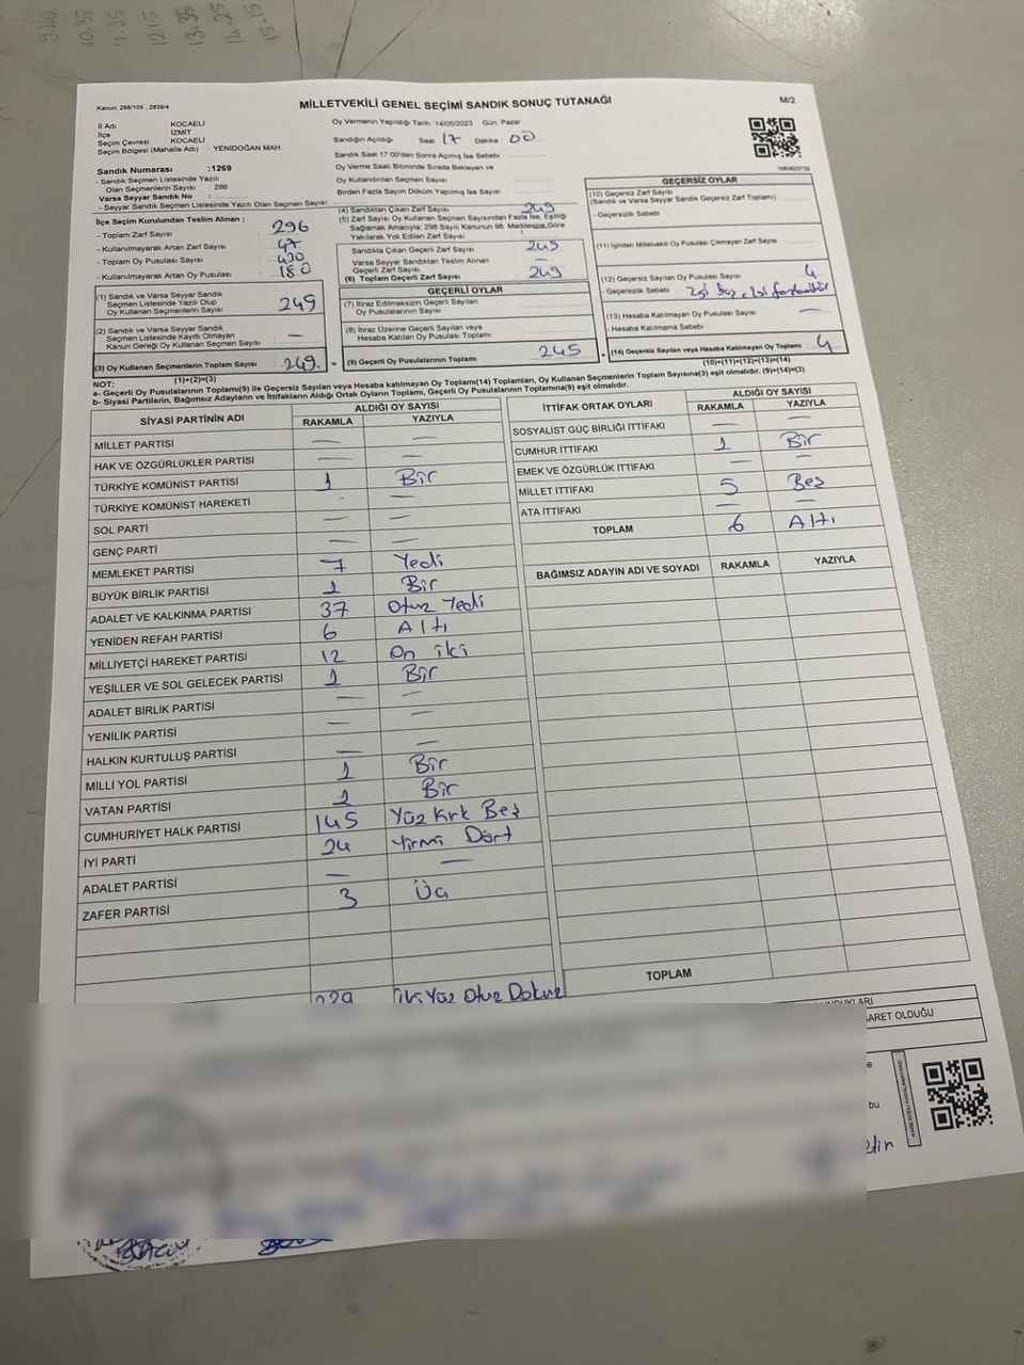 Kanun: 298/105 , 2839/4
MİLLETVEKİLİ GENEL SEÇİMİ SANDIK SONUÇ TUTANAĞI
M/2
İl Adı KOCAELİ
İlçe İZMİT
Seçim Çevresi KOCAELİ
Seçim Bölgesi (Mahalle Adı) YENİDOĞAN MAH.
Oy Vermenin Yapıldığı Tarih 14/05/2023 Gün Pazar
Sandığın Açıldığı Saat 17 Dakika 00
Sandık Saat 17:00'den Sonra Açılmış İse Sebebi
Oy Verme Saati Bitiminde Sırada Bekleyen ve
Oy Kullandırılan Seçmen Sayısı
Birden Fazla Sayım Döküm Yapılmış İse Sayısı
Sandık Numarası :1269
- Sandık Seçmen Listesinde Yazılı
Olan Seçmenlerin Sayısı : 286
Varsa Seyyar Sandık No :
- Seyyar Sandık Seçmen Listesinde Yazılı Olan Seçmen Sayısı
İlçe Seçim Kurulundan Teslim Alınan ;
- Toplam Zarf Sayısı 296
- Kullanılmayarak Artan Zarf Sayısı 47
- Toplam Oy Pusulası Sayısı 430
- Kullanılmayarak Artan Oy Pusulası 180
(1) Sandık ve Varsa Seyyar Sandık
Seçmen Listesinde Yazılı Olup
Oy Kullanan Seçmenlerin Sayısı 249
(2) Sandık ve Varsa Seyyar Sandık
Seçmen Listesinde Kayıtlı Olmayan
Kanun Gereği Oy Kullanan Seçmen Sayısı —
(3) Oy Kullanan Seçmenlerin Toplam Sayısı 249
(1)+(2)=(3)
(4) Sandıktan Çıkan Zarf Sayısı 249
(5) Zarf Sayısı Oy Kullanan Seçmen Sayısından Fazla İse, Eşitliği
Sağlamak Amacıyla; 298 Sayılı Kanunun 98. Maddesine Göre
Yakılarak Yok Edilen Zarf Sayısı
Sandıkta Çıkan Geçerli Zarf Sayısı 249
Varsa Seyyar Sandıktan Teslim Alınan
Geçerli Zarf Sayısı —
(6) Toplam Geçerli Zarf Sayısı 249
GEÇERLİ OYLAR
(7) İtiraz Edilmeksizin Geçerli Sayılan
Oy Pusulalarının Sayısı
(8) İtiraz Üzerine Geçerli Sayılan veya
Hesaba Katılan Oy Pusulası Sayısı
(9) Geçerli Oy Pusulalarının Toplamı 245
GEÇERSİZ OYLAR
(10) Geçersiz Zarf Sayısı
(Sandık ve Varsa Seyyar Sandık Geçersiz Zarf Toplamı)
- Geçersizlik Sebebi
(11) İçinden Milletvekili Oy Pusulası Çıkmayan Zarf Sayısı
(12) Geçersiz Sayılan Oy Pusulası Sayısı 4
- Geçersizlik Sebebi
(13) Hesaba Katılmayan Oy Pusulası Sayısı —
- Hesaba Katılmama Sebebi
(14) Geçersiz Sayılan veya Hesaba Katılmayan Oy Toplamı 4
(10)+(11)+(12)+(13)=(14)
NOT:
a- Geçerli Oy Pusulalarının Toplamı(9) ile Geçersiz Sayılan veya Hesaba katılmayan Oy Toplamı(14) Toplamları, Oy Kullanan Seçmenlerin Toplam Sayısına(3) eşit olmalıdır. (9)+(14)=(3)
b- Siyasi Partilerin, Bağımsız Adayların ve İttifakların Aldığı Ortak Oyların Toplamı, Geçerli Oy Pusulalarının Toplamına(9) eşit olmalıdır.
SİYASİ PARTİNİN ADI ALDIĞI OY SAYISI
RAKAMLA YAZIYLA
MİLLET PARTİSİ — —
HAK VE ÖZGÜRLÜKLER PARTİSİ — —
TÜRKİYE KOMÜNİST PARTİSİ 1 Bir
TÜRKİYE KOMÜNİST HAREKETİ — —
SOL PARTİ — —
GENÇ PARTİ — —
MEMLEKET PARTİSİ 7 Yedi
BÜYÜK BİRLİK PARTİSİ 1 Bir
ADALET VE KALKINMA PARTİSİ 37 Otuz Yedi
YENİDEN REFAH PARTİSİ 6 Altı
MİLLİYETÇİ HAREKET PARTİSİ 12 On iki
YEŞİLLER VE SOL GELECEK PARTİSİ 1 Bir
ADALET BİRLİK PARTİSİ — —
YENİLİK PARTİSİ — —
HALKIN KURTULUŞ PARTİSİ — —
MİLLİ YOL PARTİSİ 1 Bir
VATAN PARTİSİ 1 Bir
CUMHURİYET HALK PARTİSİ 145 Yüz Kırk Beş
İYİ PARTİ 24 Yirmi Dört
ADALET PARTİSİ — —
ZAFER PARTİSİ 3 Üç
239 İki Yüz Otuz Dokuz
İTTİFAK ORTAK OYLARI ALDIĞI OY SAYISI
RAKAMLA YAZIYLA
SOSYALİST GÜÇ BİRLİĞİ İTTİFAKI — —
CUMHUR İTTİFAKI 1 Bir
EMEK VE ÖZGÜRLÜK İTTİFAKI — —
MİLLET İTTİFAKI 5 Beş
ATA İTTİFAKI — —
TOPLAM 6 Altı
BAĞIMSIZ ADAYIN ADI VE SOYADI RAKAMLA YAZIYLA
TOPLAM
ARET OLDUĞU
bu